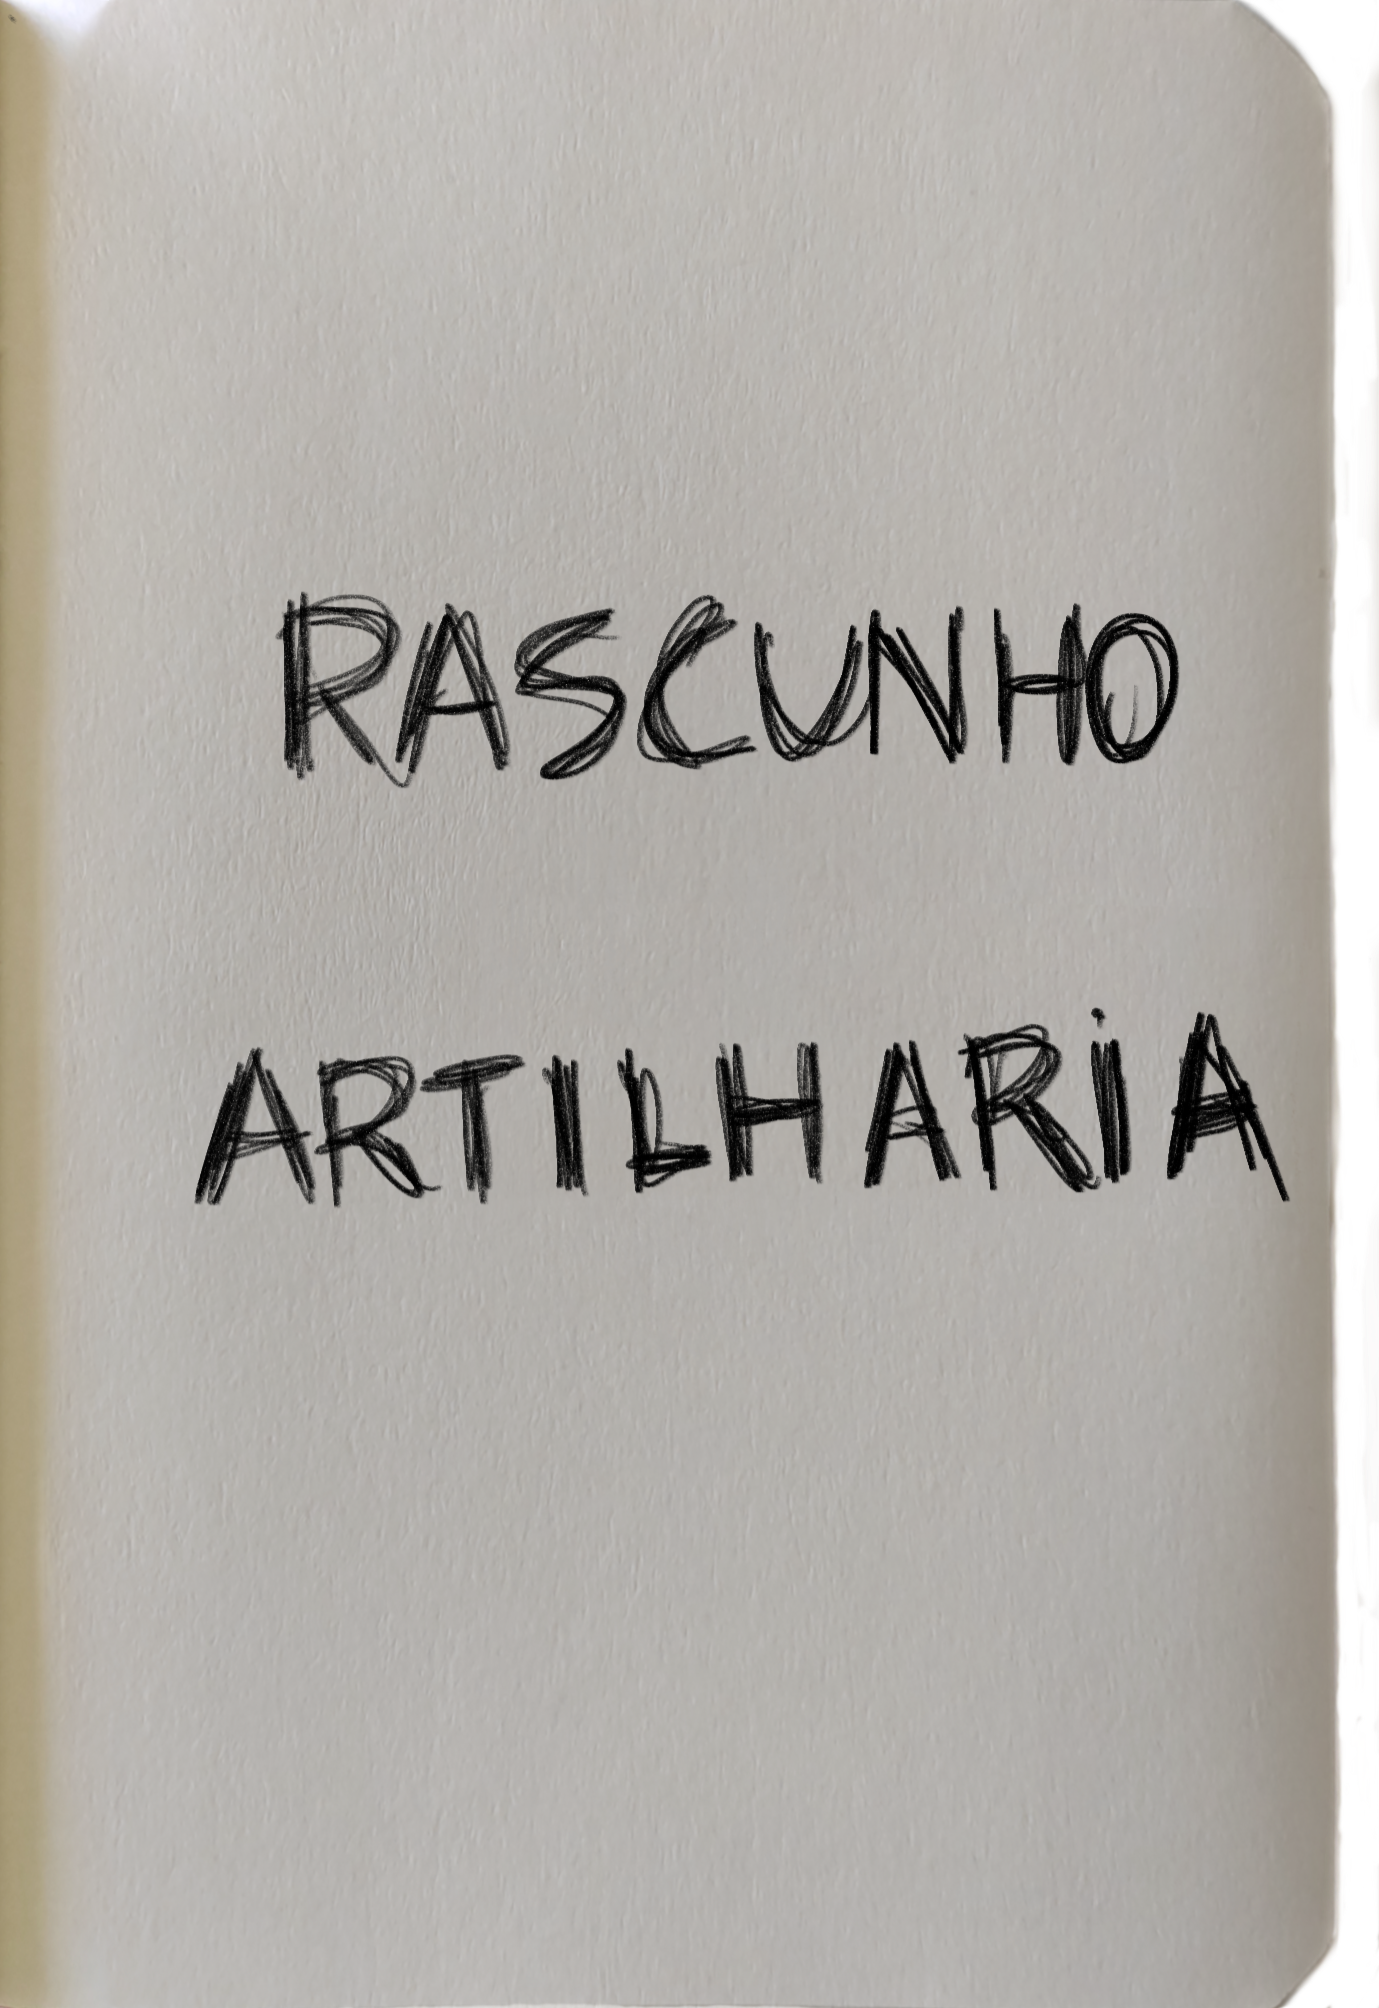 RASCUNHO
ARTILHARiA